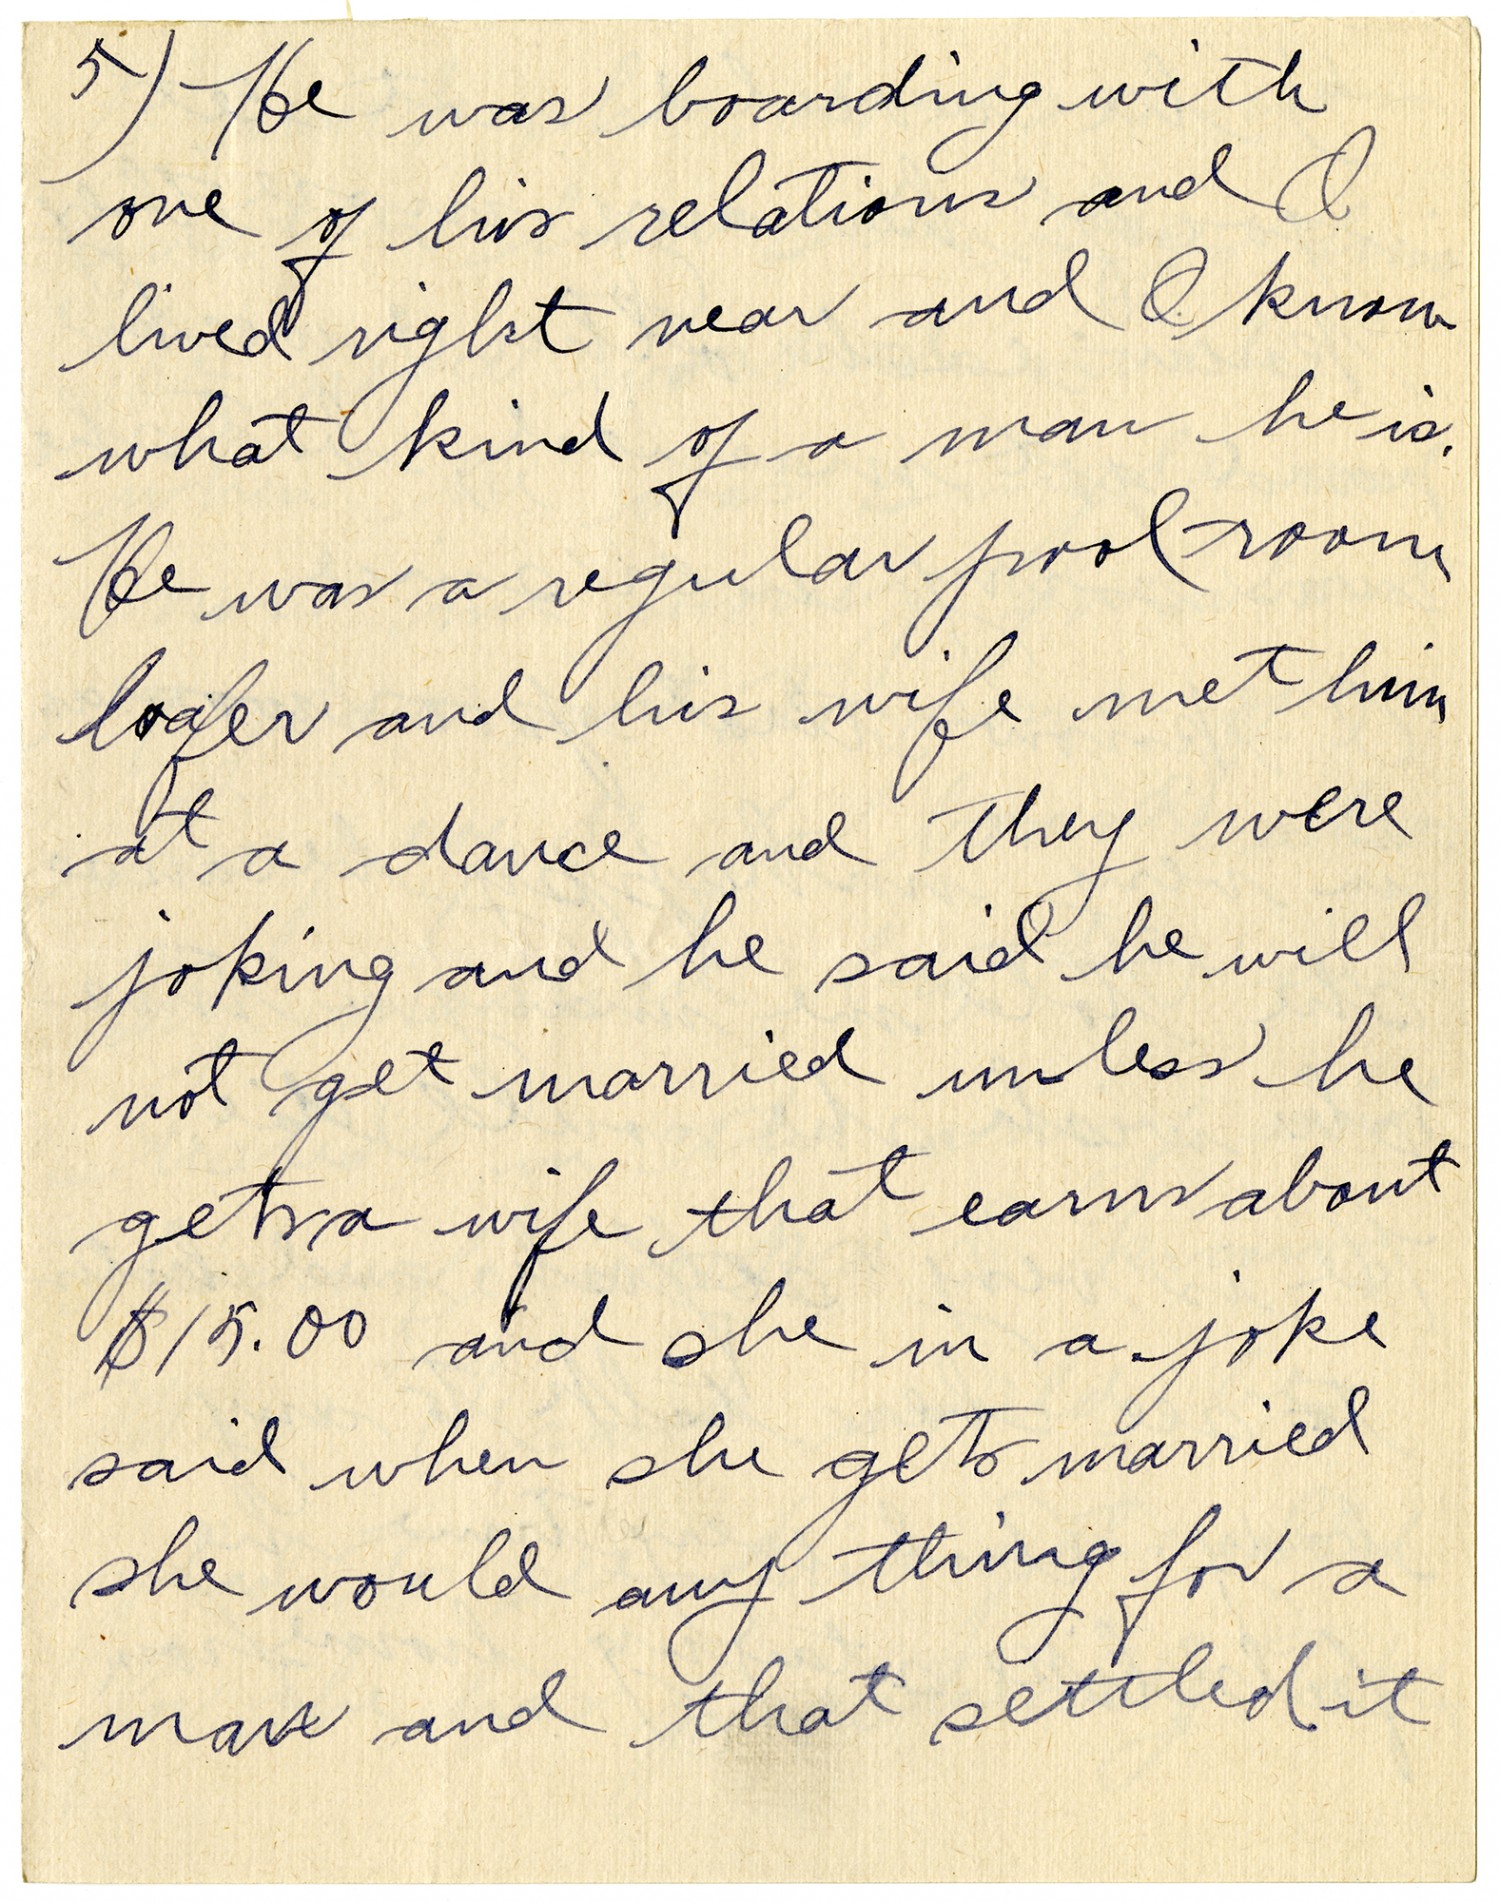 5) He was boarding with
one of his relations and I
lived right near and I know
what kind of a man he is.
He was a regular pool-room
loafer and his wife met him
at a dance and they were
joking and he said he will
not get married unless he
gets a wife that earns about
$15.00 and she in a joke
said when she gets married
she would any thing for a
man and that settled it